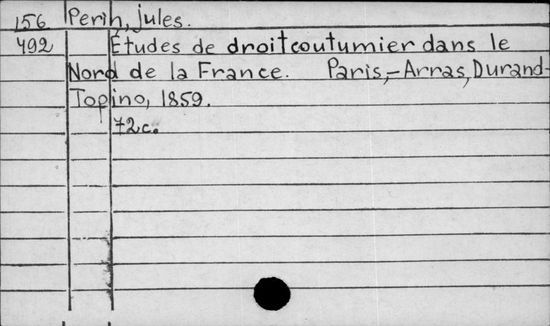 156 Perin, jules.
492 Études de droit coutumier dans le
Nord de la France. Paris,-Arras, Durand-
Topino, 1859.
72c.